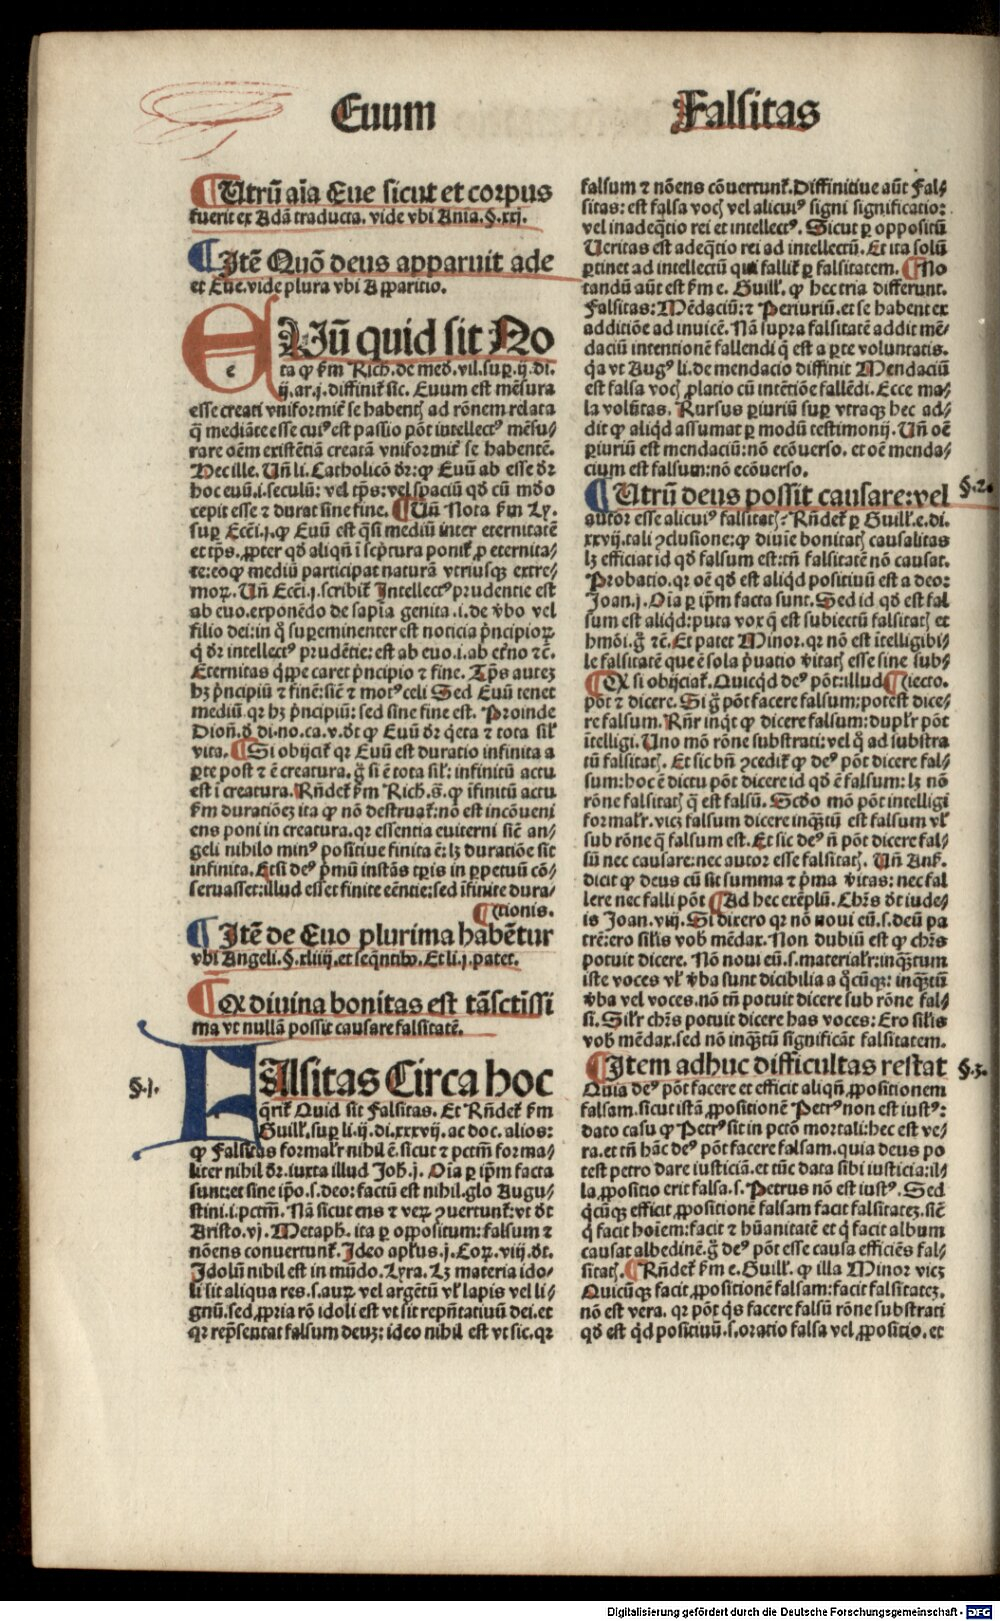 Euum
Falsitas
¶Utrū aīa Eue sicut et corpus
fuerit ex Adā traducta. vide vbi Anīa.§.xxj.
¶Itē Quō deus apparuit ade
et Eue.vide plura vbi Apparitio.
EUū quid sit No
e
ta ꝙ ẜm Rich.de med.vil.suꝑ.ij.di.
ij.ar.j.diffiniť sic. Euum est mēsura
esse creati vniformiť se habentꝭ ad rōnem relata
q̄ mediāte esse cuiꝰ est passio pōt intellectꝰ mēsu/
rare oēm existētiā creatā vniformiť se habentē.
Hec ille. Uñ li. Catholicō dr: ꝙ Euū ab esse dr
hoc euū.i.seculū: vel tꝑs: vel spaciū qd cū mōo
cepit esse ⁊ durat sine fine. ¶Uñ Nota ẜm Ly.
suꝑ Ecci.j.ꝙ Euū est q̄si mediū inter eternitatē
et tꝑs.ꝓpter qd aliqñ ī scpťura poniť ꝓ eternita/
te: eoꝙ mediū participat naturā vtriusqꝫ extre/
moꝝ. Uñ Ecci.j.scribiť Intellectꝰ prudentie est
ab euo.exponēdo de sapīa genita .i. de v̄bo vel
filio dei: in q̊ supeminenter est noticia pñcipioꝝ
q̄ dr intellectꝰ prudētie: est ab euo.i.ab eťno ⁊cē.
Eternitas q̄ppe caret pñcipio ⁊ fine. Tꝑs auteꝫ
hꝫ pñcipiū ⁊ finē: siē ⁊ motꝰ celi Sed Euū tenet
mediū qꝛ hꝫ pñcipiū: sed sine fine est. Proinde
Dioñ.d̄ di.no.ca.v.dt ꝙ Euū dr q̄eta ⁊ tota siľ
vita. ¶Si obijciť qꝛ Euū est duratio infinita a
ꝑte post ⁊ ē creatura.g̊ si ē tota siľ: infinitū actu
est ī creatura. Rñdeť ẜm Rich.ẜ. ꝙ īfinitū actu
ẜm duratiōeꝫ ita ꝙ nō destruať: nō est incōueni
ens poni in creatura.qꝛ essentia euiterni siē an/
geli nihilo minꝰ positiue finita ē: lꝫ duratiōe sit
infinita. Etsi deꝰ pmū instās tꝑis in ꝑpetuū cō/
seruasset: illud esset finite eēntie: sed īfinite dura/
¶tionis.
¶Itē de Euo plurima habētur
vbi Angeli.§.xliiij.et seq̄ntibꝰ. Et li.j.patet.
¶Qꝙ diuina bonitas est tā sctīssi
ma vt nullā possit causare falsitatē.
§.j.
FAlsitas Circa hoc
q̄riť Quid sit Falsitas. Et Rñdeť ẜm
Guilľ.suꝑ li.ij.di.xxxvij. ac doc. alios:
ꝙ Falsitas formalr nihil ē.sicut ⁊ pctm̄ forma/
liter nihil dr.iuxta illud Joh.j. Oīa ꝑ ip̄m facta
sunt: et sine ip̄o.s.deo: factū est nihil.glo Augu/
stini.i.pctm̄. Nā sicut ens ⁊ veꝝ ꝯuertunť: vt dt
Aristo.vj. Metaph. ita ꝑ oppositum: falsum ⁊
nōens conuertunť. Ideo aplus.j.Coꝝ.viij.dt.
Idolū nihil est in mūdo. Lyra. Lꝫ materia ido/
li sit aliqua res.s.auꝝ vel argētū vľ lapis vel li/
gnū.sed ꝓpria rō idoli est vt sit repñtatiuū dei.et
qꝛ repsentat falsum deuꝫ: ideo nihil est vt sic.qꝛ
falsum ⁊ nōens cōuertunť. Diffinitiue aūt Fal/
sitas: est falsa vocꝭ vel alicuiꝰ signi significatio:
vel inadeq̄tio rei et intellectꝰ. Sicut ꝑ oppositū
Ueritas est adeq̄tio rei ad intellectū. Et ita solū
ꝑtinet ad intellectū qui falliť ꝑ falsitatem. ¶No
tandū aūt est ẜm e. Guilľ. ꝙ hec tria differunt.
Falsitas: Mēdaciū: ⁊ Periuriū.et se habent ex
additiōe ad inuicē. Nā supra falsitatē addit mē/
daciū intentionē fallendi q̄ est a ꝑte voluntatis.
q̄a vt Augꝰ li.de mendacio diffinit Mendaciū
est falsa vocꝭ ꝓlatio cū intētiōe fallēdi. Ecce ma/
la volūtas. Rursus ꝑiuriū suꝑ vtraqꝫ hec ad/
dit ꝙ aliqd assumat ꝑ modū testimonij. Uñ oē
ꝑiuriū est mendaciū: nō ecōuerso. et oē menda/
cium est falsum: nō ecōuerso.
¶Utrū deus possit causare: vel
§.2.
autor esse alicuiꝰ falsitatꝭ? Rñdeť ꝑ Guilľ.e.di.
xxvij.tali ꝯclusione: ꝙ diuīe bonitatꝭ causalitas
lꝫ efficiat id qd falsum est: tñ falsitatē nō causat.
Probatio.qꝛ oē qd est aliqd positiuū est a deo:
Joan.j. Oīa ꝑ ip̄m facta sunt. Sed id qd est fal
sum est aliqd: puta vox q̄ est subiectū falsitatꝭ et
hmōi.g̊ ⁊cē. Et patet Minor.qꝛ nō est ītelligibi/
le falsitatē que ē sola pŭatio v̄itatꝭ esse sine sub/
¶Qꝙ si obijciať. Quicqd deꝰ pōt: illud ¶iecto.
pōt ⁊ dicere. Si g̊ pōt facere falsum: potest dice/
re falsum. Rñr inq̄t ꝙ dicere falsum: duplr pōt
ītelligi. Uno mō rōne substrati: vel q̄ ad substra
tū falsitatꝭ. Et sic bñ ꝯcediť ꝙ deꝰ pōt dicere fal/
sum: hoc ē dictu pōt dicere id qd ē falsum: lꝫ nō
rōne falsitatꝭ q̄ est falsū. Scdo mō pōt intelligi
formalr.viꝫ falsum dicere inq̄ꝫtū est falsum vľ
sub rōne q̄ falsum est. Et sic deꝰ ñ pōt dicere fal/
sū nec causare: nec autor esse falsitatꝭ. Uñ Anš.
dicit ꝙ deus cū sit summa ⁊ pma v̄itas: nec fal
lere nec falli pōt ¶Ad hec exēplū. Chrs dt iude/
is Joan.viij. Si dixero qꝛ nō noui eū.s.deū pa
trē: ero silis vob mēdax. Non dubiū est ꝙ chrs
potuit dicere. Nō noui eū.s.materialr: inq̄ꝫtum
iste voces vľ v̄ba sunt dicibilia a q̊cūqꝫ: inq̄ꝫtū
v̄ba vel voces.nō tñ potuit dicere sub rōne fal/
si. Silr chrs potuit dicere has voces: Ero silis
vob mēdax.sed nō inq̄ꝫtū significāt falsitatem.
¶Item adhuc difficultas restat
§.3.
Quia deꝰ pōt facere et efficit aliqñ ꝓpositionem
falsam.sicut istā ꝓpositionē Petrꝰ non est iustꝰ:
dato casu ꝙ Petrꝰ sit in pctō mortali: hec est ve/
ra.et tñ hāc deꝰ pōt facere falsam.quia deus po
test petro dare iusticiā.et tūc data sibi iusticia: il/
la ꝓpositio erit falsa.s. Petrus nō est iustꝰ. Sed
q̊cūqꝫ efficit ꝓpositionē falsam facit falsitateꝫ.siē
q̊ facit hoīem: facit ⁊ hūanitatē et q̊ facit album
causat albedinē.g̊ deꝰ pōt esse causa efficiēs fal/
sitatꝭ. ¶Rñdeť ẜm e. Guilľ. ꝙ illa Minor viꝫ
Quicūqꝫ facit ꝓpositionē falsam: facit falsitateꝫ.
nō est vera. qꝛ pōt q̊s facere falsū rōne substrati
qd est qd positiuū.s.oratio falsa vel ꝓpositio.et
Digitalisierung gefördert durch die Deutsche Forschungsgemeinschaft - DFG